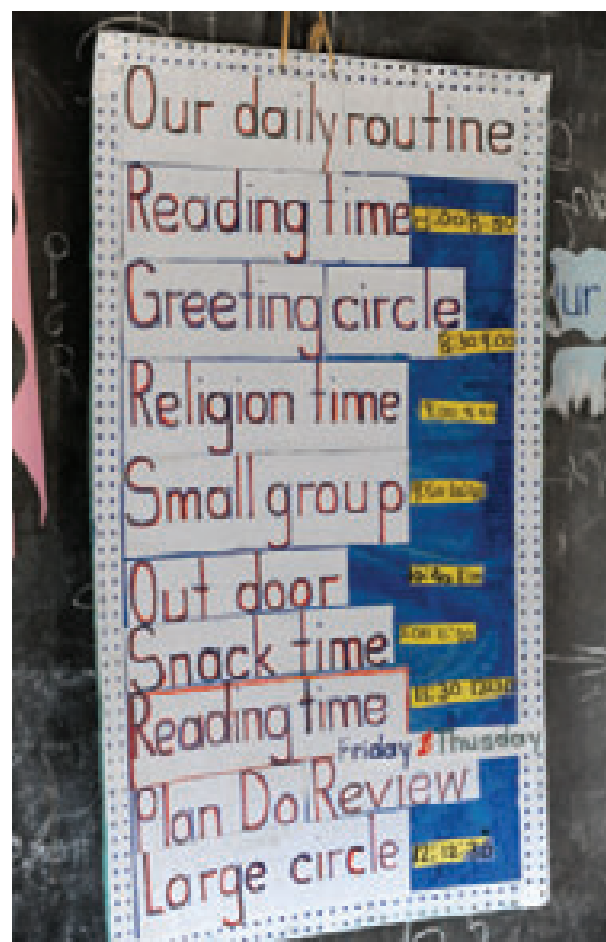 Our daily routine
Reading time
Greeting circle
8:30 9.00
Religion time
Small group
Out door
Snack time
Reading time
Friday & Thusday
Plan Do Review
Large circle
ur